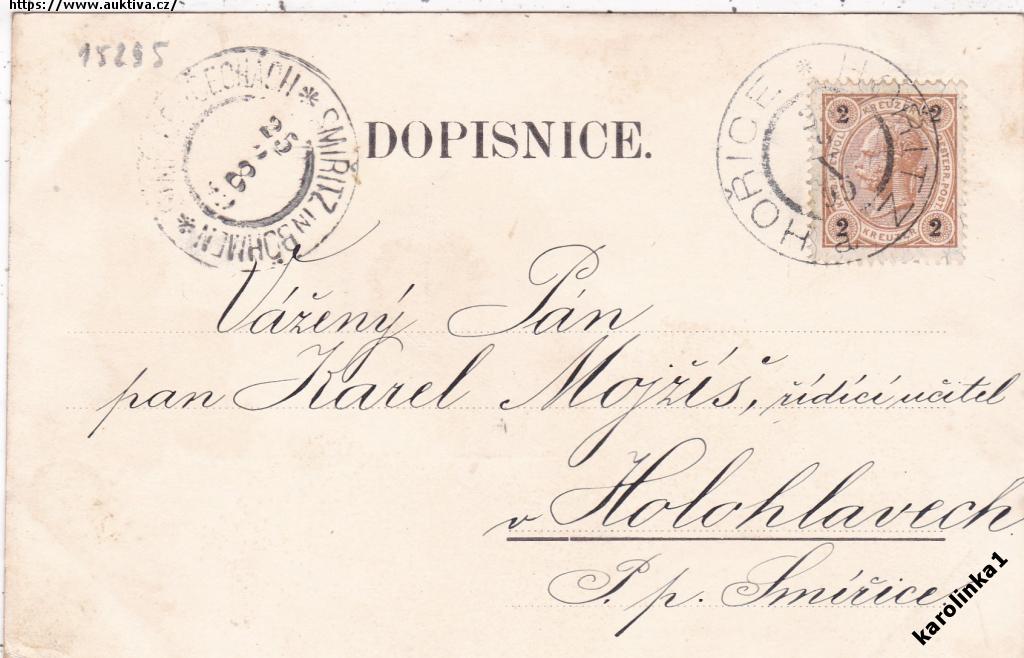 https://www.auktiva.cz/
15295
ČECHÁCH * SMIŘITZ IN BÖHMEN *
DOPISNICE.
HOŘICE * HOŘITZ
2 KREUZER 2
2 KREUZER 2
Vážený Pán
pan Karel Mojžíš, řídící učitel
v Holohlavech
P. p. Smířice
karolinka1